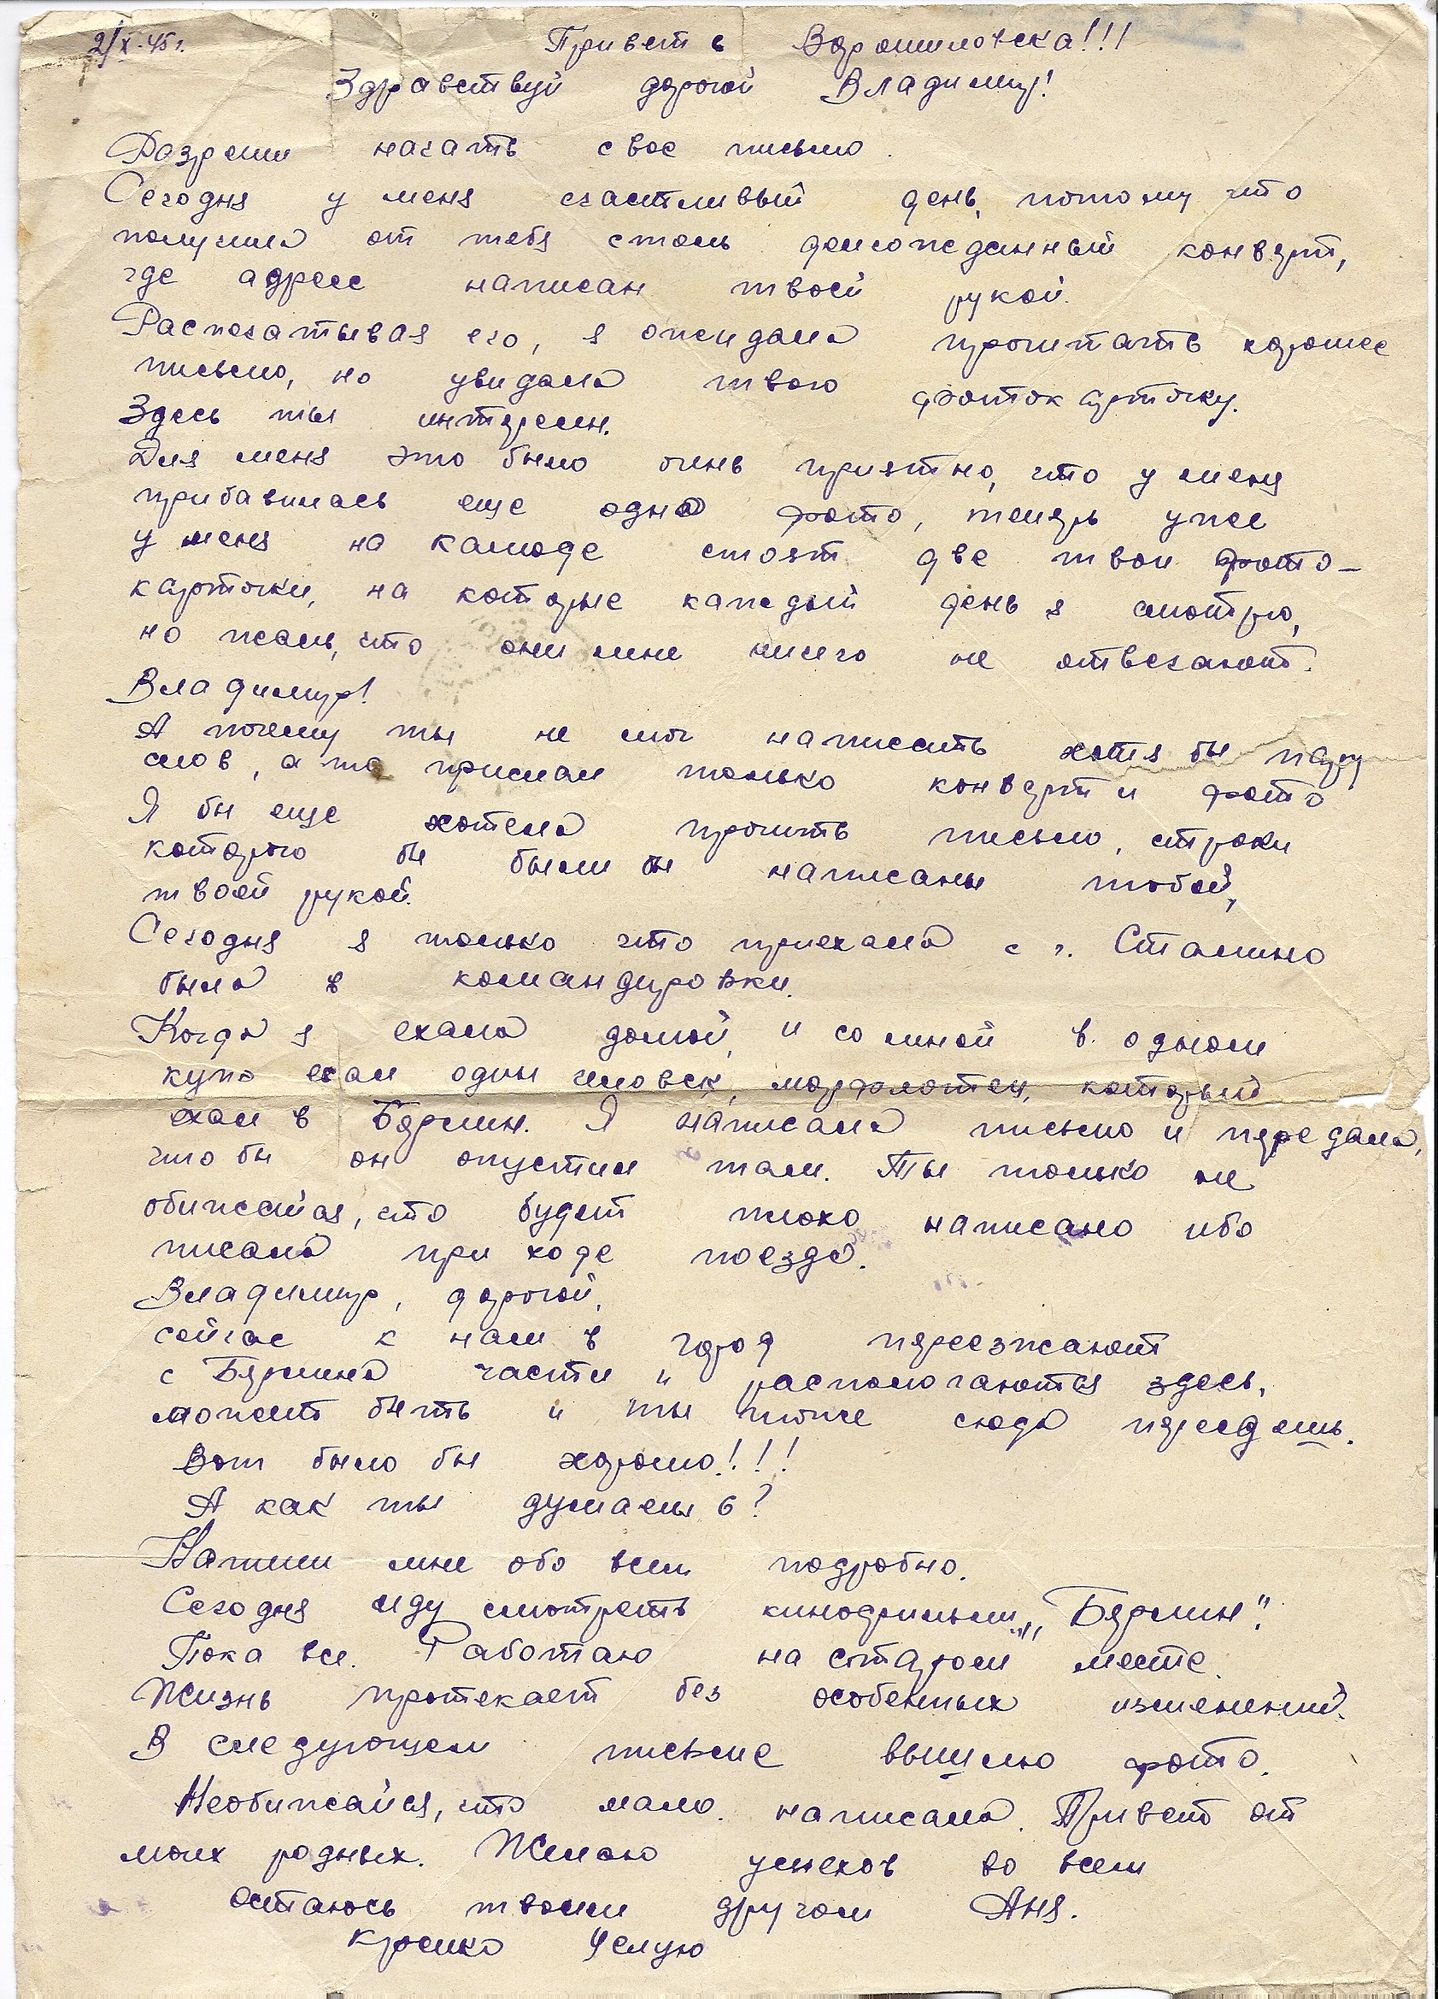 2/X-45 г.
Привет с Ворошиловска!!!
Здравствуй дорогой Владимир!
Разреши начать свое письмо.
Сегодня у меня счастливый день, потому что
получила от тебя столь долгожданный конверт,
где адресс написан твоей рукой.
Распечатывая его, я ожидала прочитать хорошее
письмо, но увидала твою фотокарточку.
Здесь ты интересен.
Для меня это было очень приятно, что у меня
прибавилась еще одна фото, теперь уже
у меня на камоде стоят две твои фото-
карточки, на которые каждый день я смотрю,
но жаль, что они мне ничего не отвечают.
Владимир!
А почему ты не мог написать хотя бы пару
слов, а то прислал только конверт и фото
Я бы еще хотела прочить письмо, строки
которого бы были бы написаны тобой,
твоей рукой.
Сегодня я только что приехала с г. Сталино
была в командировки.
Когда я ехала домой, и со мной в одном
купэ ехал один человек, морфлотец, который
ехал в Берлин. Я написала письмо и передала,
что бы он опустил там. Ты только не
обижайся, что будет плохо написано ибо
писала при ходе поезда.
Владимир, дорогой,
сейчас к нам в город переезжают
с Берлина части и распологаются здесь,
может быть и ты тоже сюда переедешь.
Вот было бы хорошо!!!
А как ты думаешь?
Напиши мне обо всем подробно.
Сегодня иду смотреть кинофильм „Берлин".
Пока все. Работаю на старом месте.
Жизнь протекает без особенных изменений.
В следующем письме вышлю фото.
Необижайся, что мало написала. Привет от
моих родных. Желаю успехов во всем
остаюсь твоим другом Аня.
Крепко целую